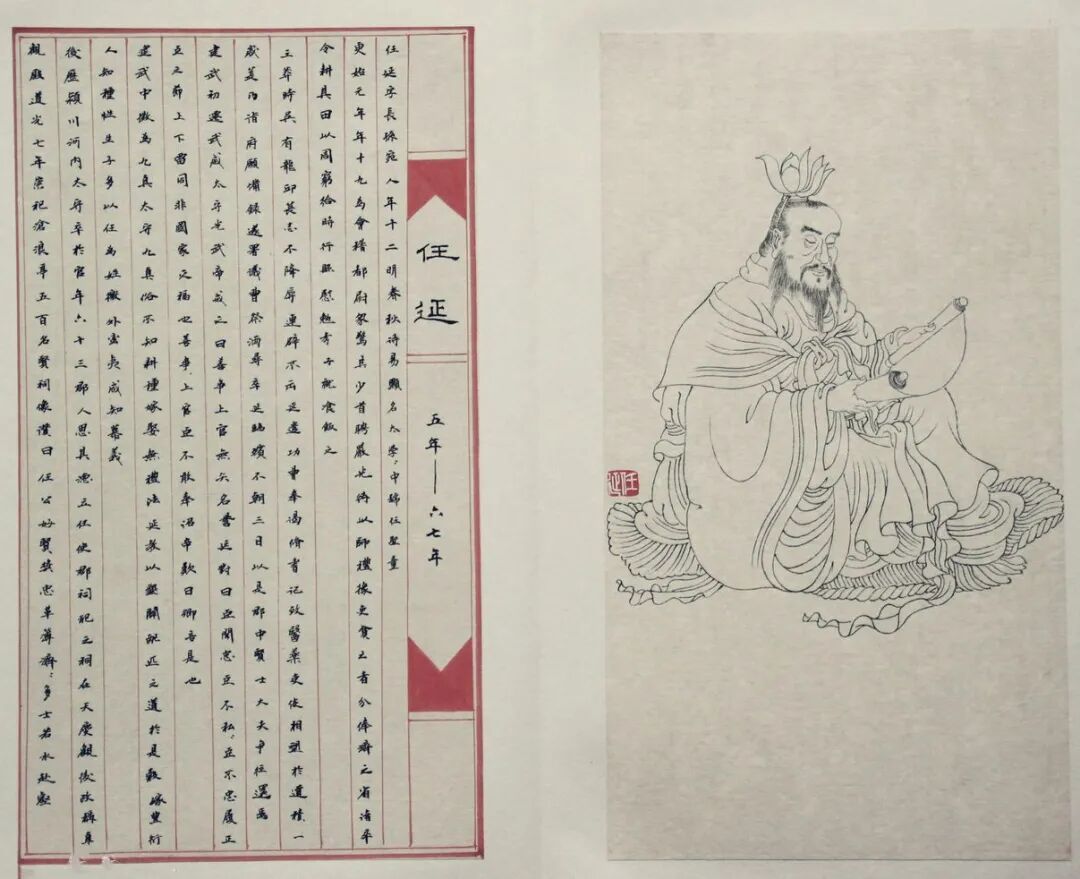 任延
五年——六七年
任延字長孫宛人年十二明春秋诗易顯名太學々中稱任聖童
更始元年年十九為會稽都尉众驚其少首聘嚴光待以師禮掾吏貧乏者分俸濟之省诸卒
令耕其田以周窮给時行縣慰勉孝子就食飯之
王莽時吴有龍邱萇志不降辱連辟不延遣功曹奉谒脩書记致醫藥吏使相望於道積一
歲萇乃诣府願備録遂署議曹祭酒尋卒延臨殯不朝三日以是郡中賢士大夫争往還焉
建武初遷武威太守光武帝戒之曰善事上官無失名譽延對曰臣聞忠臣不私々臣不忠履正
臣之節上下雷同非國家之福也善事上官臣不敢奉诏帝歎曰卿言是也
建武中徵為九真太守九真俗不知耕種嫁娶無禮法延教以墾闢配匹之道於是穀稼豐衍
人知種姓生子多以任為姓徼外蛮夷咸知慕義
後歷颍川河内太守卒於官年六十三郡人思其德立任使郡祠祀之祠在天慶觀後改稱真
親殿道光七年崇祀滄浪亭五百名賢祠像讚曰任公好賢奖忠革薄濟々多士若水赴壑
任延